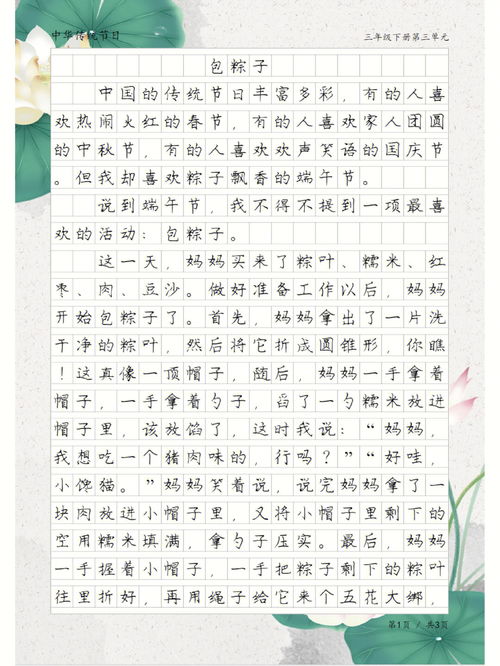 中华传统节日
三年级下册第三单元
包粽子
中国的传统节日丰富多彩，有的人喜
欢热闹火红的春节，有的人喜欢家人团圆
的中秋节，有的人喜欢欢声笑语的国庆节
。但我却喜欢粽子飘香的端午节。
说到端午节，我不得不提到一项最喜
欢的活动：包粽子。
这一天，妈妈买来了粽叶、糯米、红
枣、肉、豆沙。做好准备工作以后，妈妈
开始包粽子了。首先，妈妈拿出了一片洗
干净的粽叶，然后将它折成圆锥形，你瞧
！这真像一顶帽子，随后，妈妈一手拿着
帽子，一手拿着勺子，舀了一勺糯米放进
帽子里，该放馅了，这时我说：“妈妈，
我想吃一个猪肉味的，行吗？”“好哇，
小馋猫。”妈妈笑着说，说完妈妈拿了一
块肉放进小帽子里，又将小帽子里剩下的
空用糯米填满，拿勺子压实。最后，妈妈
一手握着小帽子，一手把粽子剩下的粽叶
往里折好，再用绳子给它来个五花大绑，
第1页 / 共3页